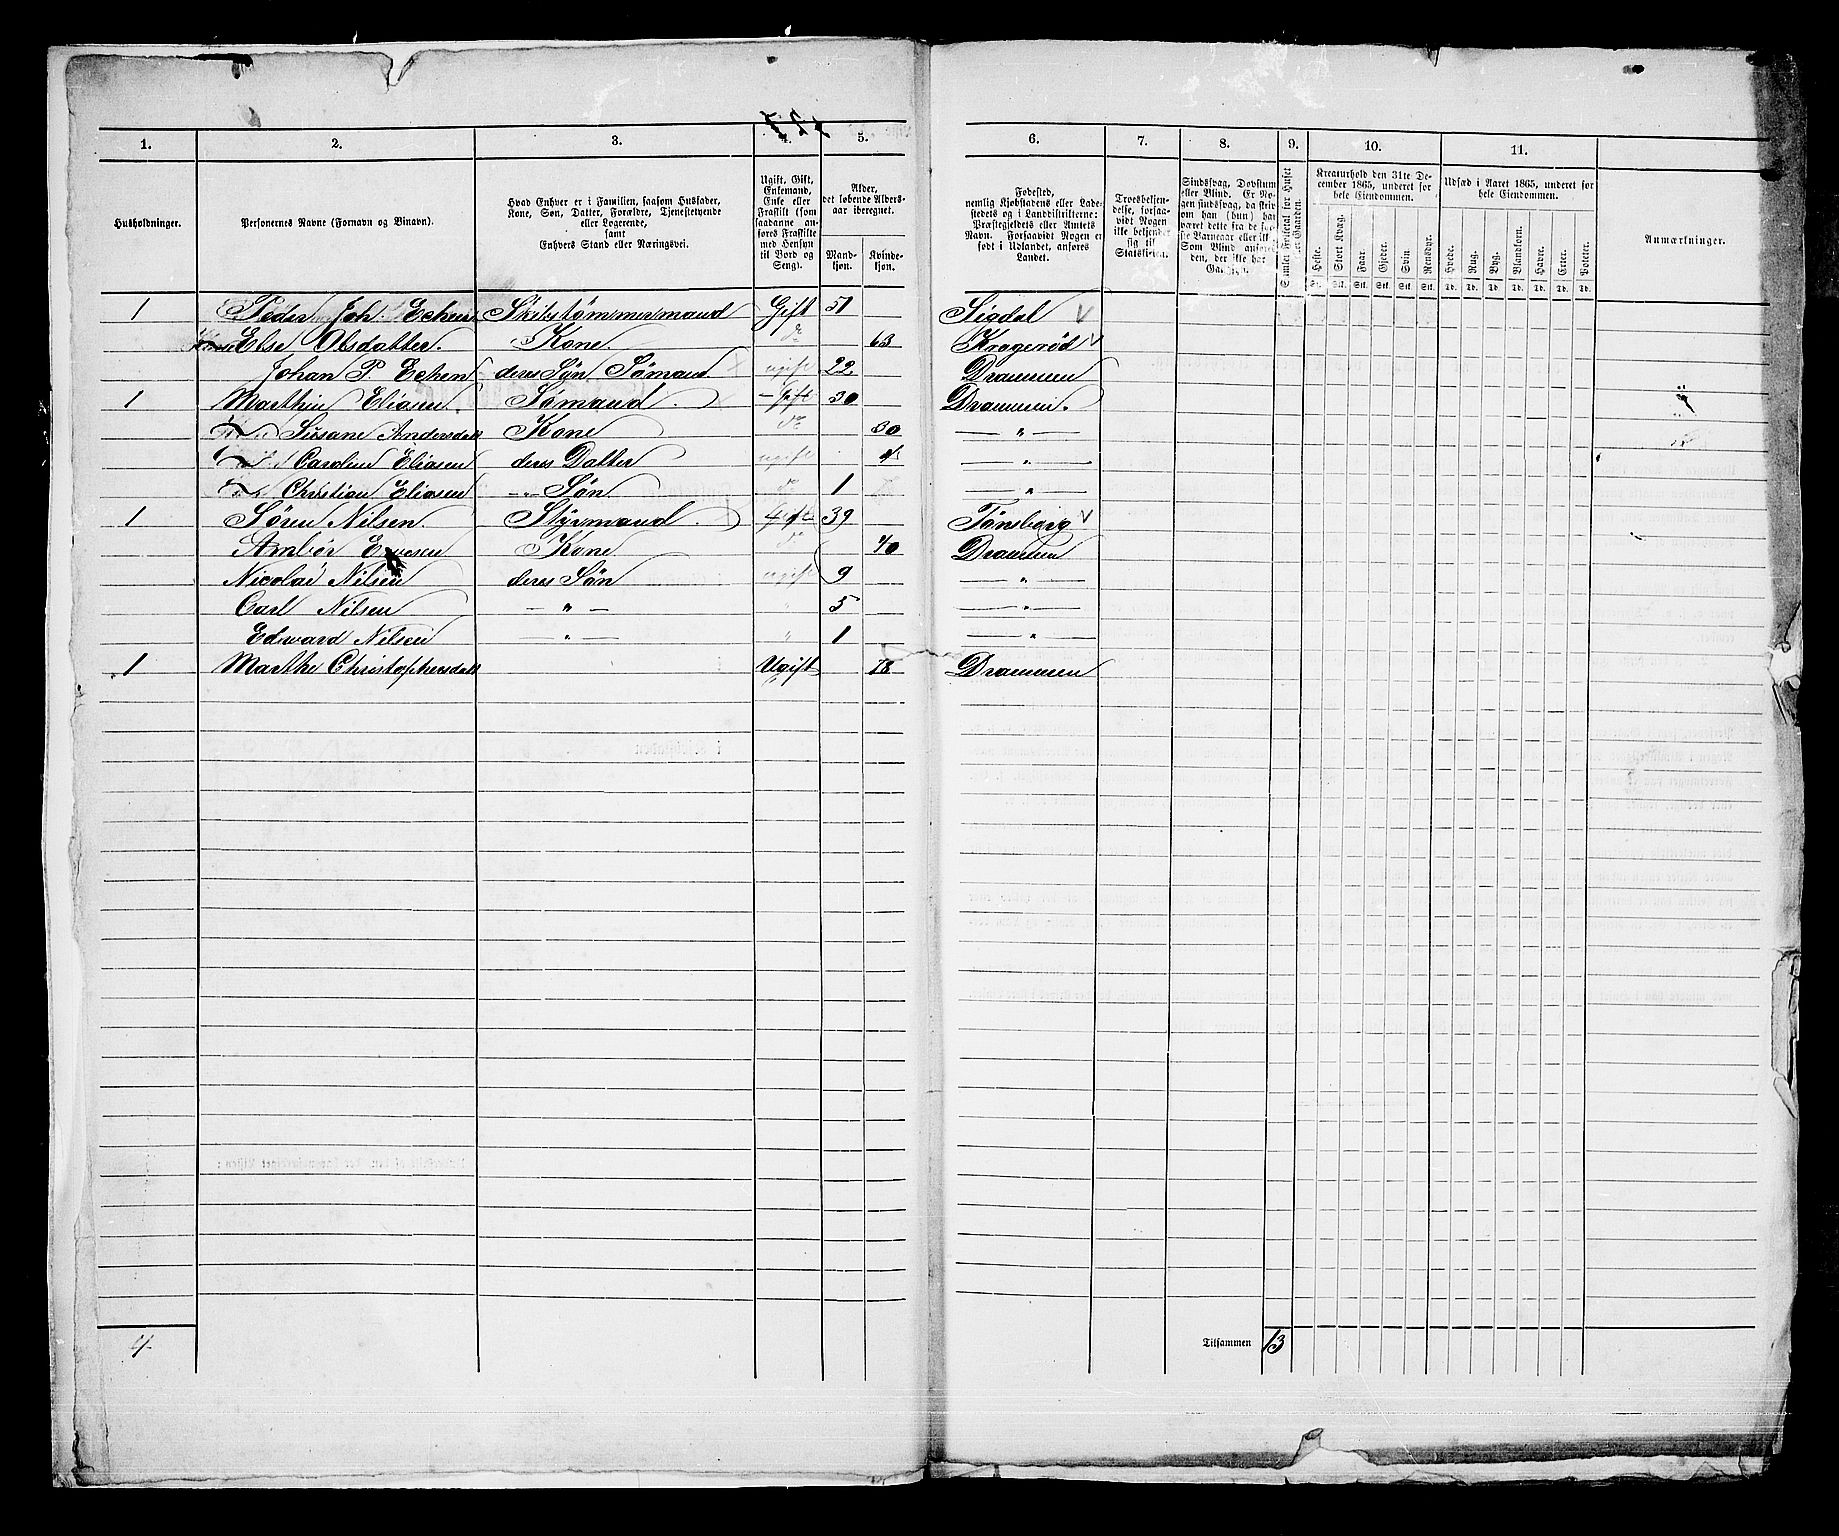 1. 2. 3. 4. 5. 6. 7. 8. 9. 10. 11.
Husholdninger.
Personernes Navne (Fornavn og Binavn).
Hvad Enhver er i Familien, saasom Husfader,
Kone, Søn, Datter, Forældre, Tjenestetyende
eller Logerende,
samt
Enhvers Stand eller Næringsvei.
Ugift, Gift,
Enkemand,
Enke eller
Fraskilt (som
saadanne an-
føres Fraskilte
med Hensyn
til Bord og
Seng).
Alder,
det løbende Alders-
aar iberegnet.
Mand-
kjøn.
Kvinde-
kjøn.
Fødested,
nemlig Kjøbstadens eller Lade-
stedets og i Landdistrikterne:
Præstegjeldets eller Amtets
Navn. Forsaavidt Nogen er
født i Udlandet, anføres
Landet.
Troesbekjen-
delse, forsaa-
vidt Nogen
ikke bekjender
sig til
Statskirken.
Sindssvag, Døvstum
eller Blind. Er No-
gen sindssvag, da skriv
om han (hun) har
været dette fra de
Barneaar eller
Som Blind anføres
den, der ikke har
Gangsyn.
Kreaturhold den 31te De-
cember 1865, underet for
hele Eiendommen.
Heste. Stort Kvæg. Faar. Gjeder. Svin. Rensdyr.
Stk. Stk. Stk. Stk. Stk.
Udsæd i Aaret 1865, underet for
hele Eiendommen.
Hvede. Rug. Byg. Blandkorn. Havre. Erter. Poteter.
Td. Td. Td. Td. Td. Td. Td.
Anmærkninger.
1 Peder Joh: Echen Skibstømmermand Gift 51 Sigdal
Else Olsdatter. Kone do 63 Kragerød
Johan P Echen deres Søn Sømand ugift 22 Drammen
1 Marthin Eliasen. Sømand. Gift 30 Drammen.
Susane Andersdatt Kone do 30 — " —
Caroline Eliasen deres Datter ugift 4 — " —
Christian Eliasen — " — Søn do 1 — " —
1 Søren Nilsen. Styrmand. Gift 39 Tønsberg
Ambør Kone do 40 Drammen
Nicolai Nilsen deres Søn ugift 9 — " —
Carl Nilsen — " — " 5 — " —
Edward Nilsen — " — " 1 — " —
1 Marthe Christophersdatt Ugift 78 Drammen
4 Tilsammen 13